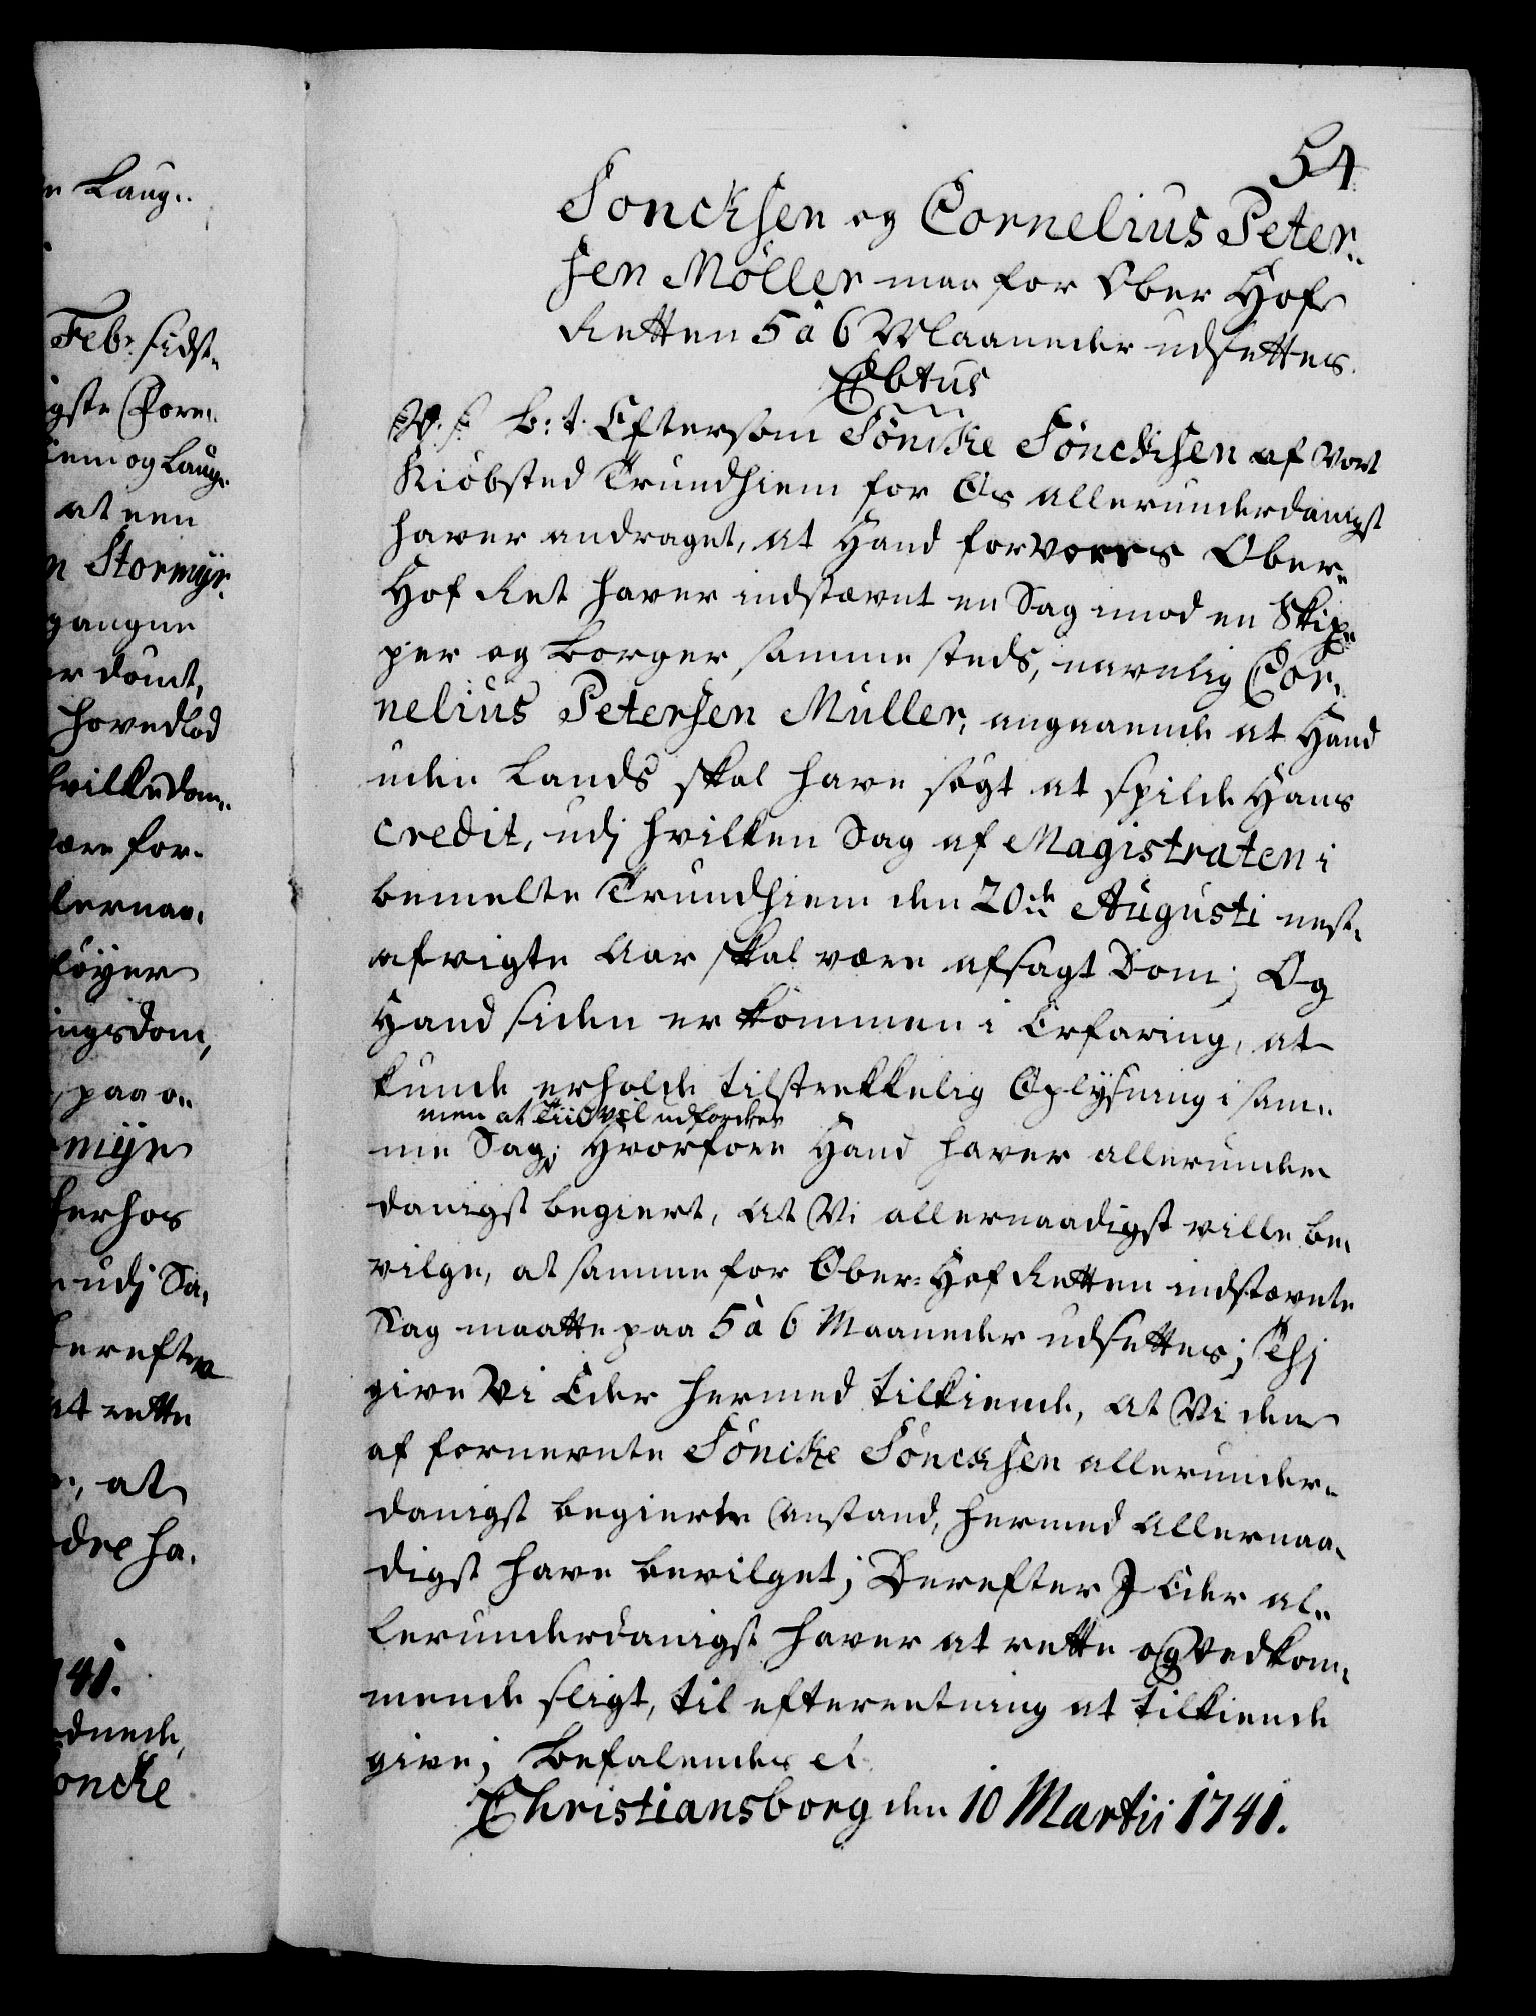 54
Soncksen og Cornelius Peter-
sen Möller maa for Ober Hof
Retten 5 à 6 Maaneder udsettes.
C. 6tus
W. s. B: t. Eftersom Söncke Söncksen af Vort
Kiöbsted Trundhiem for Os allerunderdanigst
haver andraget, at Hand for Vores Ober-
Hof Ret haver indstævnt en Sag imod en Skip-
per og Borger sammesteds, navnlig Cor-
nelius Petersen Müller, angaaende at Hand
uden Lands skal have søgt at spilde Hans
credit, udj hvilken Sag af Magistraten i
bemelte Trundhiem den 20de Augusti nest-
afvigte Aar skal være afsagt Dom; Og
Hand siden er kommen i Erfaring, at
kunde erholde tilstrekkelig Oplysning i sam-
men at Tiid vil udfordres
me Sag; Hvorfore Hand haver allerunder
danigst begiert, at Vi allernaadigst ville be-
vilge, at samme for Ober-Hof Retten indstævnte
Sag maatte paa 5 à 6 Maaneder udsettes; Thj
give Vi Eder hermed tilkiende, at Vi den
af fornevnte Söncke Söncksen allerunder-
danigst begierte Anstand, hermed Allernaa-
digst have bevilget; Derefter I Eder al-
lerunderdanigst haver at rette og Vedkom-
mende sligt, til efterretning at tilkiende
give; Befalendes etc.
Christiansborg den 10 Martii 1741.
Laug-
Febr: sidst-
igste Fore-
iem og Laug-
at een
n Stormyr-
gangne
er dömt,
hovedlod
hvilken dom-
være for-
lernaa-
löyer
ingsdom,
paa a-
rmyr
derhos
udj Sa-
derefter
at rette
at
dre ha-
741.
dnede,
oncke